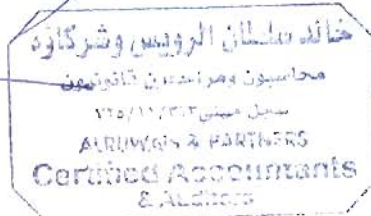 خالد سلطان الرويس وشركاؤه
محاسبون ومراجعون قانونيون
سجل مهني
ALRUWAIS & PARTNERS
Certified Accountants
& Auditors